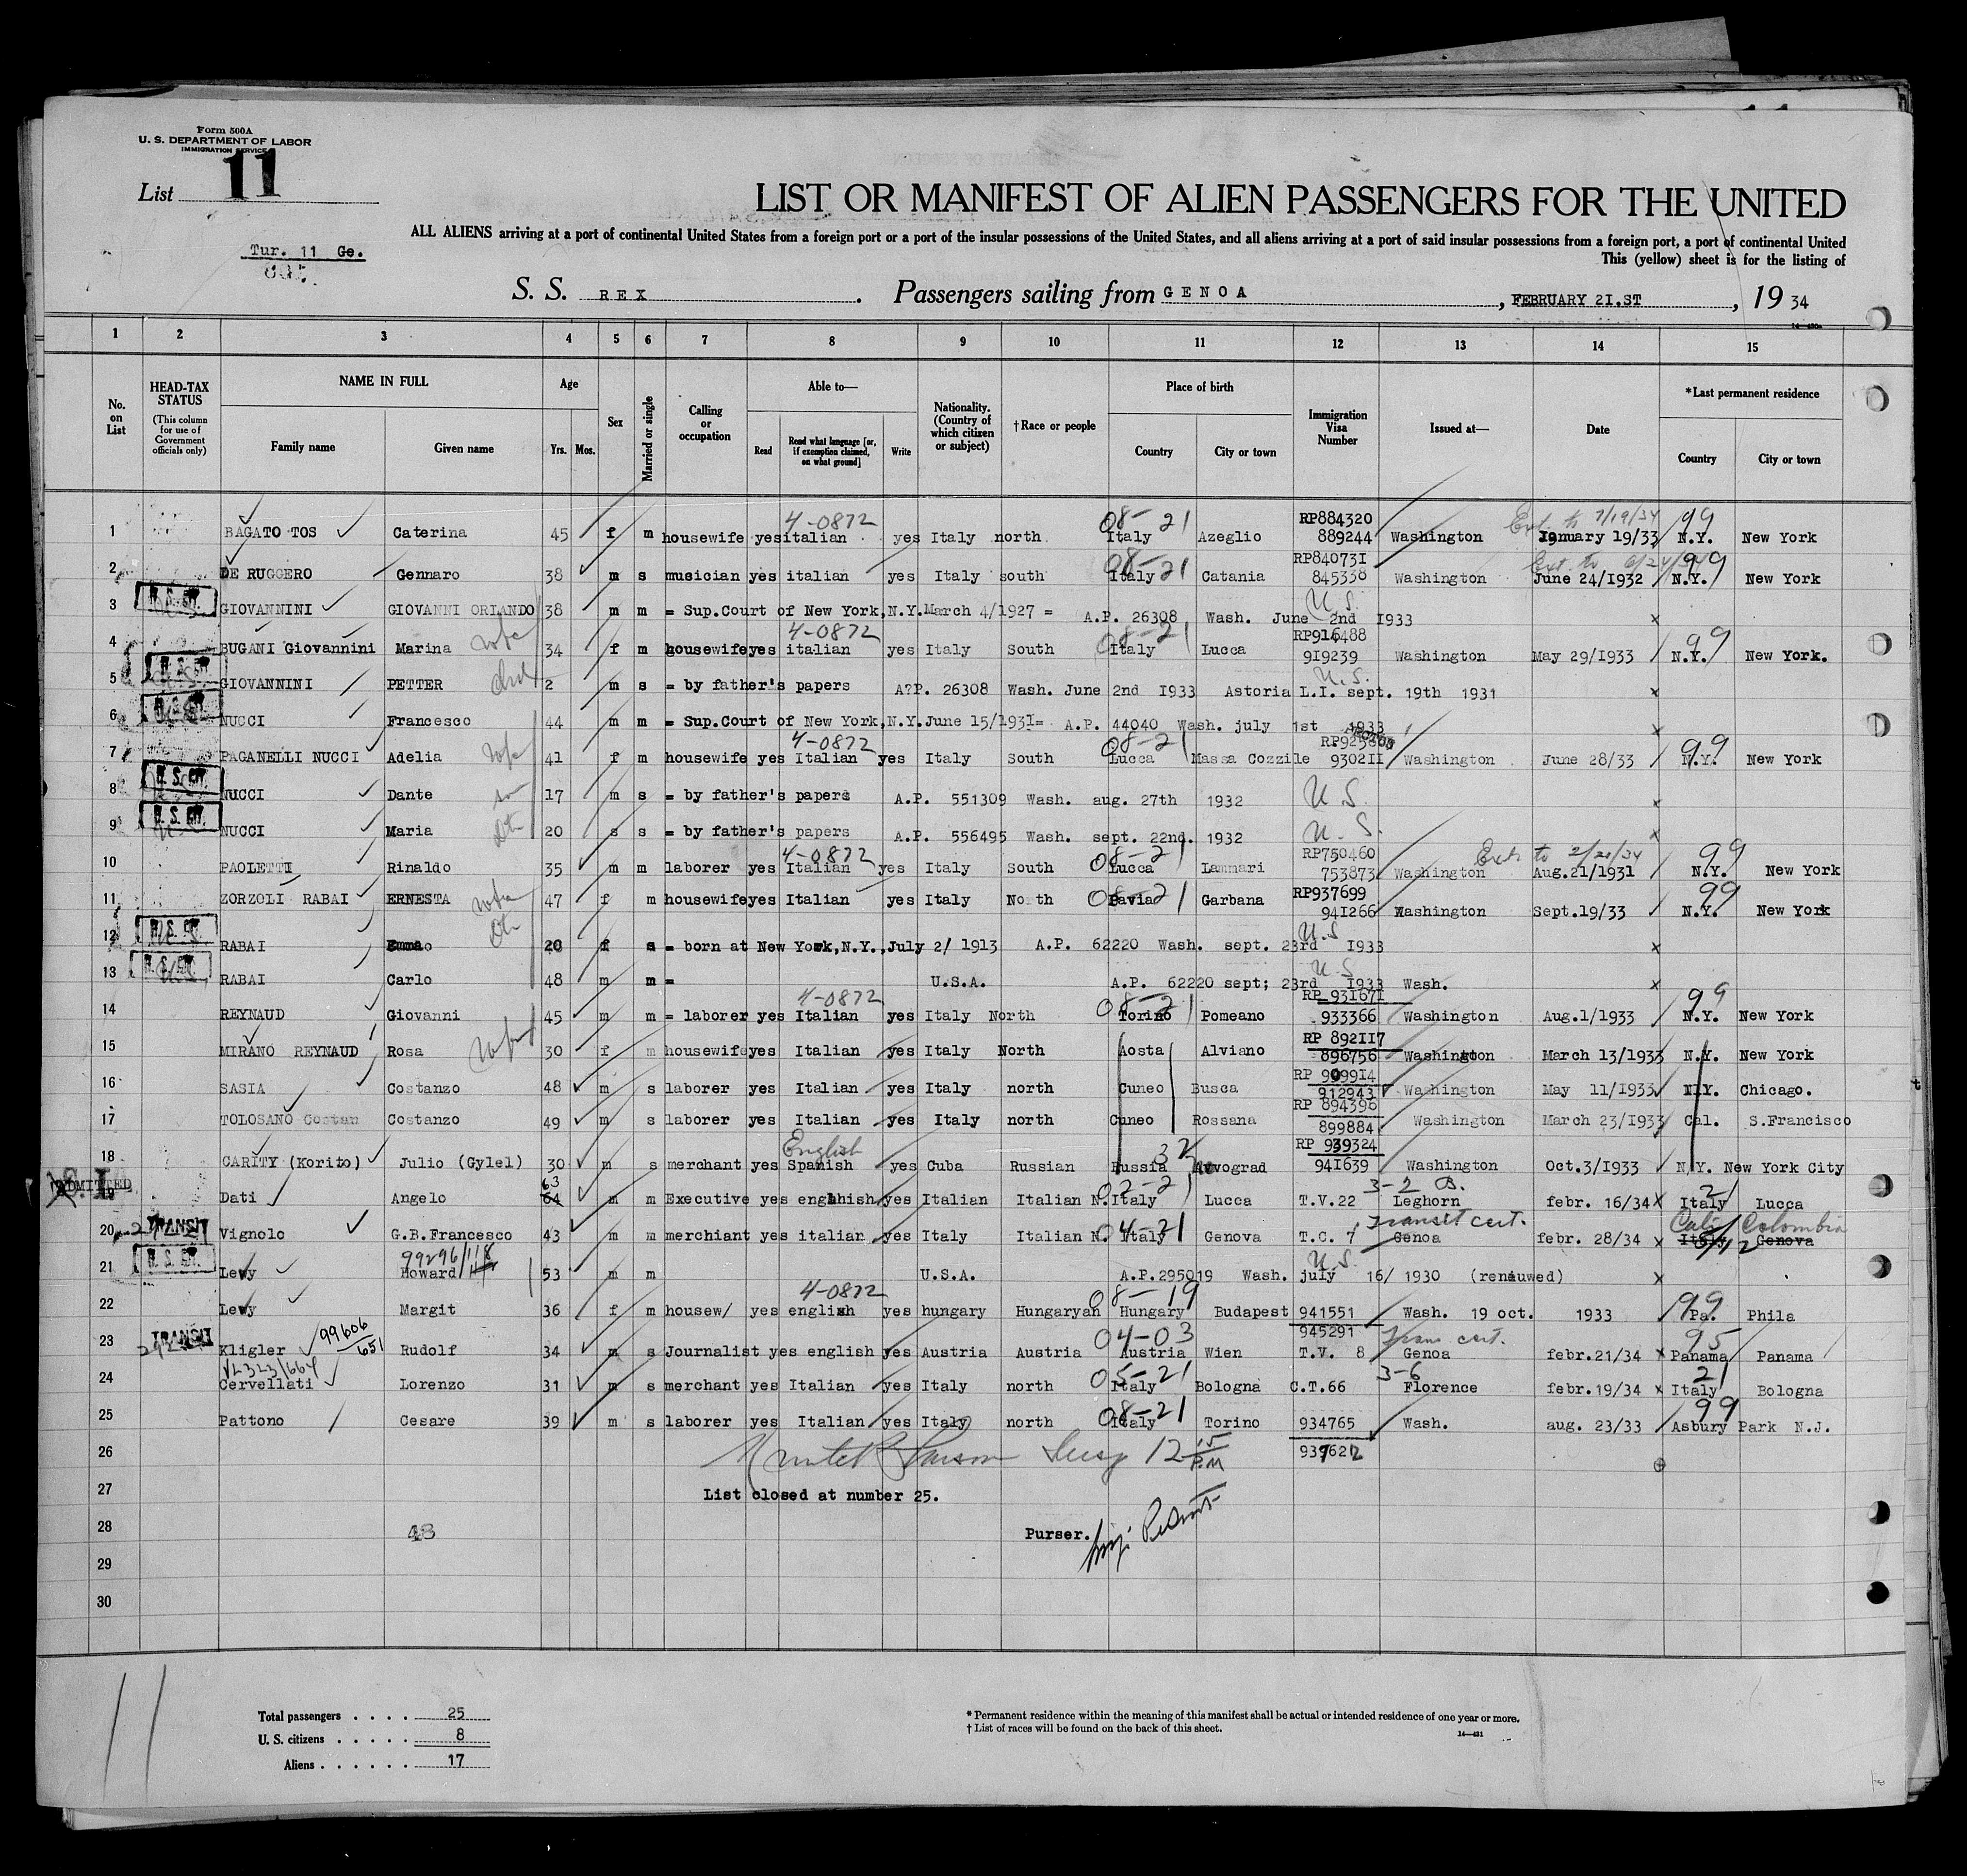 Form 500A
U. S. DEPARTMENT OF LABOR
IMMIGRATION SERVICE
List 11
LIST OR MANIFEST OF ALIEN PASSENGERS FOR THE UNITED
ALL ALIENS arriving at a port of continental United States from a foreign port or a port of the insular possessions of the United States, and all aliens arriving at a port of said insular possessions from a foreign port, a port of continental United
This (yellow) sheet is for the listing of
Tur. 11 Ge.
S. S. REX. Passengers sailing from GENOA, FEBRUARY 2I.ST, 19 34
1 2 3 4 5 6 7 8 9 10 11 12 13 14 15
No. on List
HEAD-TAX STATUS
(This column for use of Government officials only)
NAME IN FULL
Family name Given name
Age
Yrs. Mos.
Sex
Married or single
Calling or occupation
Able to—
Read Read what language [or, if exemption claimed, on what ground] Write
Nationality. (Country of which citizen or subject)
†Race or people
Place of birth
Country City or town
Immigration Visa Number
Issued at—
Date
*Last permanent residence
Country City or town
4-0872 08-21 RP884320 Ext. to 7/19/34 99
1 BAGATO TOS Caterina 45 f m housewife yes italian yes Italy north Italy Azeglio 889244 Washington January 19/33 N.Y. New York
08-21 RP84073I Ext. to 6/24/34 99
2 DE RUGGERO Gennaro 38 m s musician yes italian yes Italy south Italy Catania 845338 Washington June 24/I932 N.Y. New York
U.S.
3 GIOVANNINI GIOVANNI ORLANDO 38 m m = Sup.Court of New York,N.Y.March 4/1927 = A.P. 26308 Wash. June 2nd I933 x
4-0872 08-21 RP916488 99
4 BUGANI Giovannini Marina wife 34 f m housewife yes italian yes Italy South Italy Lucca 9I9239 Washington May 29/I933 N.Y. New York.
U.S.
5 GIOVANNINI PETTER chd 2 m s = by father's papers A?P. 26308 Wash. June 2nd I933 Astoria L.I. sept. 19th 1931 x
6 NUCCI Francesco 44 m m = Sup.Court of New York,N.Y.June 15/193I= A.P. 44040 Wash. july 1st 1933 x
4-0872 08-21 99
7 PAGANELLI NUCCI Adelia wife 41 f m housewife yes Italian yes Italy South Lucca Massa Cozzile 9302II Washington June 28/33 N.Y. New York
8 NUCCI Dante son 17 m s = by father's papers A.P. 551309 Wash. aug. 27th 1932 U.S. x
9 NUCCI Maria Dtr 20 s s = by father's papers A.P. 556495 Wash. sept. 22nd. 1932 U.S. x
4-0872 08-21 RP750460 Ext. to 2/21/34 99
10 PAOLETTI Rinaldo 35 m m laborer yes Italian yes Italy South Lucca Lammari 753873 Washington Aug.21/1931 N.Y. New York
08-21 RP937699 99
11 ZORZOLI RABAI ERNESTA 47 f m housewife yes Italian yes Italy North Pavia Garbana 94I266 Washington Sept.19/33 N.Y. New York
U.S.
12 RABAI Emma 20 f s = born at New York,N.Y.,July 2/ 1913 A.P. 62220 Wash. sept. 23rd I933 x
U.S.
13 RABAI Carlo 48 m m = U.S.A. A.P. 62220 sept; 23rd I933 Wash. x
4-0872 08-21 RP 93I67I 99
14 REYNAUD Giovanni 45 m m = laborer yes Italian yes Italy North Torino Pomeano 933366 Washington Aug.1/1933 N.Y. New York
RP 892117
15 MIRANO REYNAUD Rosa wife 30 f m housewife yes Italian yes Italy North Aosta Alviano 896756 Washington March 13/1933 N.Y. New York
RP 909914
16 SASIA Costanzo 48 m s laborer yes Italian yes Italy north Cuneo Busca 912943 Washington May 11/1933 N.Y. Chicago.
RP 894396
17 TOLOSANO Costan Costanzo 49 m s laborer yes Italian yes Italy north Cuneo Rossana 899884 Washington March 23/1933 Cal. S.Francisco
English 32 RP 939324
18 CARITY (Korito) Julio (Gylel) 30 m s merchant yes Spanish yes Cuba Russian Russia 941639 Washington Oct.3/I933 N.Y. New York City
ADMITTED 63 02-21 3-2 B. 21
19 Dati Angelo 64 m m Executive yes enghhish yes Italian Italian N. Italy Lucca T.V.22 Leghorn febr. 16/34 x Italy Lucca
TRANSIT 04-21 Transit cert. Cali Colombia
20 Vignolo G.B.Francesco 43 m m merchiant yes italian yes Italy Italian N. Italy Genova T.C. 7 Genoa febr. 28/34 x Italy Genova
U. S. CIT. 99296/118 U.S.
21 Levy Howard 53 m m U.S.A. A.P.295019 Wash. july 16/ 1930 (renauwed) x
4-0872 08-19 99
22 Levy Margit 36 f m housew/ yes english yes hungary Hungaryan Hungary Budapest 941551 Wash. 19 oct. 1933 Pa. Phila
TRANSIT 99606/651 04-03 945291 Trans cert. 95
23 Kligler Rudolf 34 m s Journalist yes english yes Austria Austria Austria Wien T.V. 8 Genoa febr.21/34 x Panama Panama
VL323/664 05-21 3-6 21
24 Cervellati Lorenzo 31 m s merchant yes Italian yes Italy north Italy Bologna C.T.66 Florence febr.19/34 x Italy Bologna
08-21 99
25 Pattono Cesare 39 m s laborer yes Italian yes Italy north Italy Torino 934765 Wash. aug. 23/33 Asbury Park N.J.
26 12 15 P.M 937622
27 List closed at number 25.
28 48 Purser.
29
30
11
Total passengers . . . . 25
U. S. citizens . . . . . 8
Aliens . . . . . . 17
* Permanent residence within the meaning of this manifest shall be actual or intended residence of one year or more.
† List of races will be found on the back of this sheet.
14—431